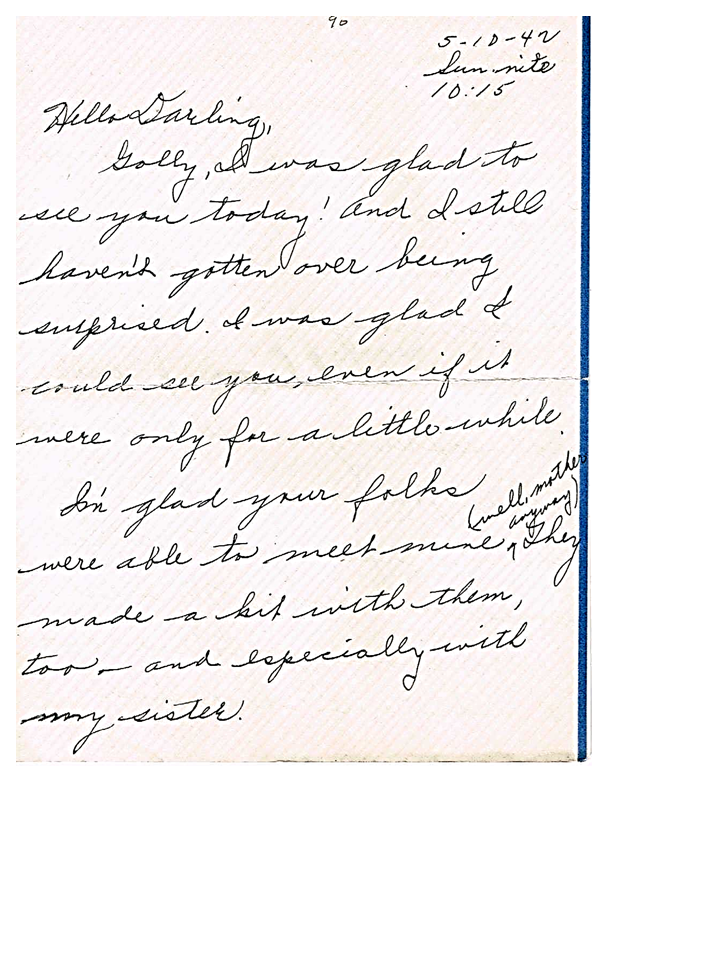 90
5-10-42
Sun. nite
10:15
Hello Darling,
Golly, I was glad to
see you today! And I still
haven't gotten over being
surprised. I was glad I
could see you, even if it
were only for a little while.
I'm glad your folks
(well, mother
anyway)
were able to meet mine. They
made a hit with them,
too - and especially with
my sister.